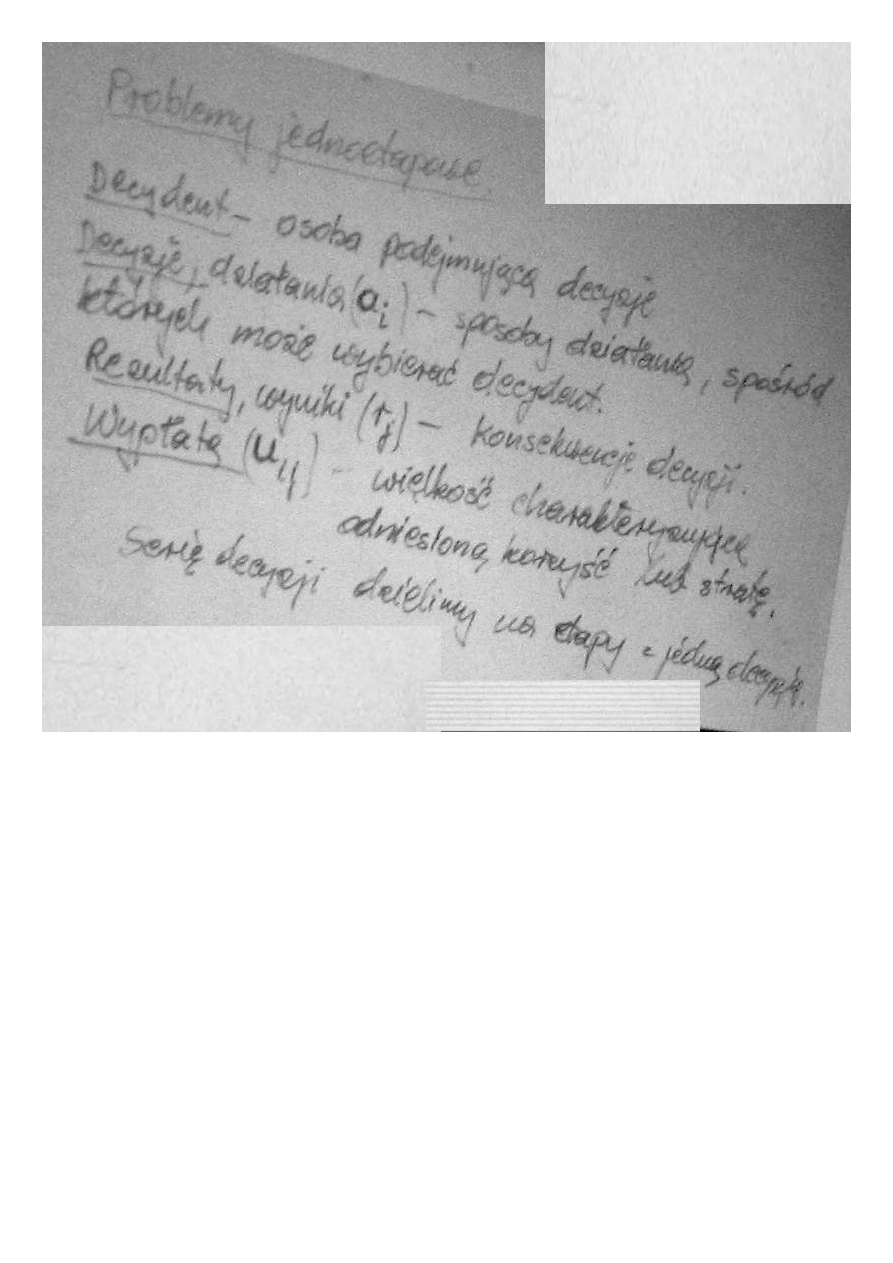 Problemy jednoetapowe.
Decydent – osoba podejmująca decyzje
Decyzje, działania (ai) – sposoby działania, spośród
których może wybierać decydent.
Rezultaty, wyniki (rj) – konsekwencje decyzji.
Wypłata (uij) – wielkość charakteryzująca
odniesioną korzyść lub stratę.
Serię decyzji dzielimy na etapy z jedną decyzją.